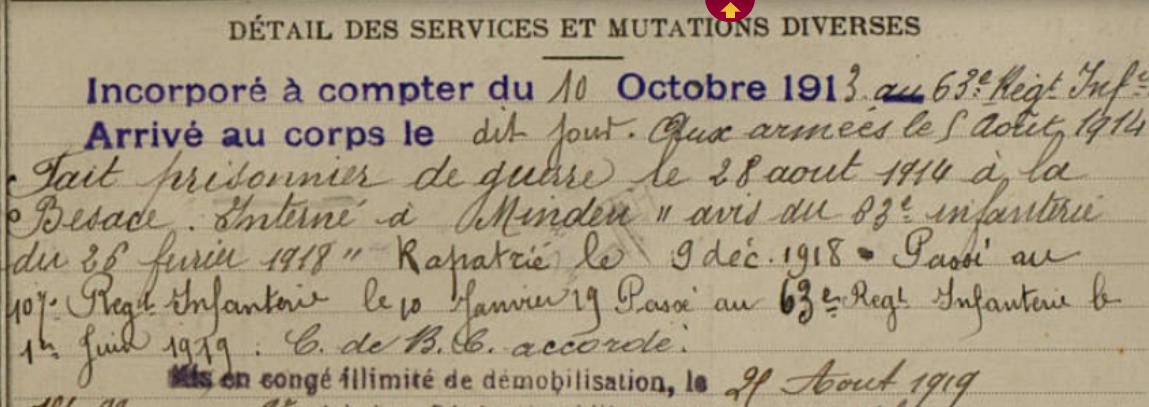 DÉTAIL DES SERVICES ET MUTATIONS DIVERSES
Incorporé à compter du 10 Octobre 1913 au 63e Régt Infie
Arrivé au corps le dit jour. Aux armées le 5 Août 1914
Fait prisonnier de guerre le 28 aout 1914 à la
Besace. Interné à Minden " avis du 63e infanterie
du 26 fevrier 1918 " Rapatrié le 9 déc. 1918 - Passé au
107e Regt Infanterie le 10 Janvier 19 Passé au 63e Regt Infanterie le
1er Juin 1919. C. de B. C. accordé.
Mis en congé illimité de démobilisation, le Aout 1919